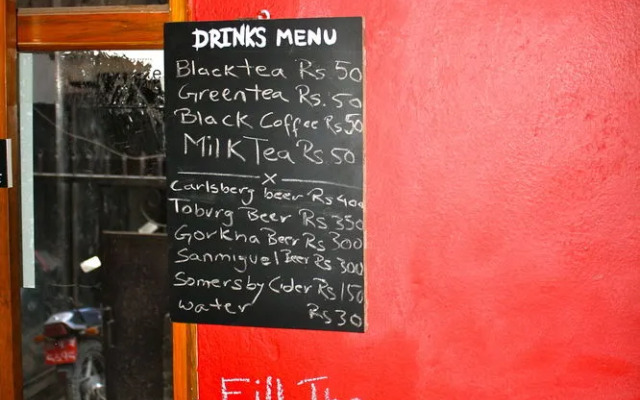 DRINKS MENU
Black tea Rs 50
Green tea Rs. 50
Black Coffee Rs 50
Milk Tea Rs 50
x
Carlsberg beer Rs 400
Toburg Beer Rs 350
Gorkha Beer Rs 300
Sanmiguel Beer Rs 300
Somersby Cider Rs 150
water Rs 30
Fill The